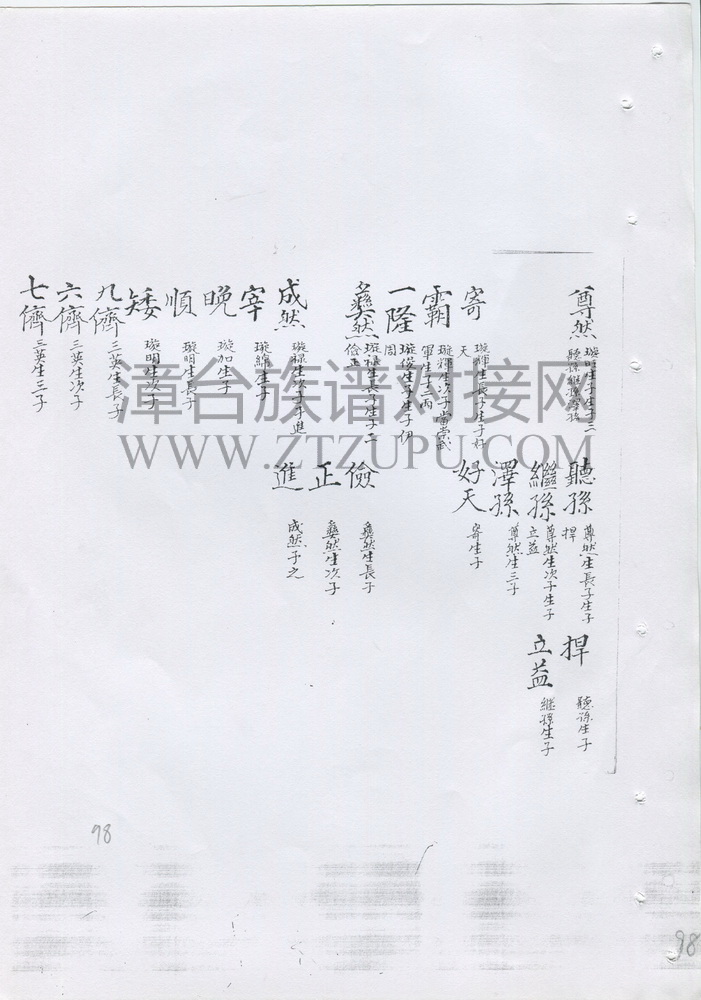 尊然
璇明生子生子三
聽孫繼孫澤孫
寄
璇輝生長子生子好
天
霸
璇輝生次子
軍生子三丙
一隆
璇俊生子生子伊
周
彝然
璇禄生長子生子二
儉正
成然
璇禄生次子子進
宰
璇綿生子
晚
璇加生子
順
璇明生長子
矮
璇明生次子
九儕
三英生長子
六儕
三英生次子
七儕
三英生三子
聽孫
尊然生長子生子
捍
繼孫
尊然生次子生子
立益
澤孫
尊然生三子
好天
寄生子
儉
彝然生長子
正
彝然生次子
進
成然子之
捍
聽孫生子
立益
繼孫生子
漳台族谱对接网
WWW.ZTZUPU.COM
98
98